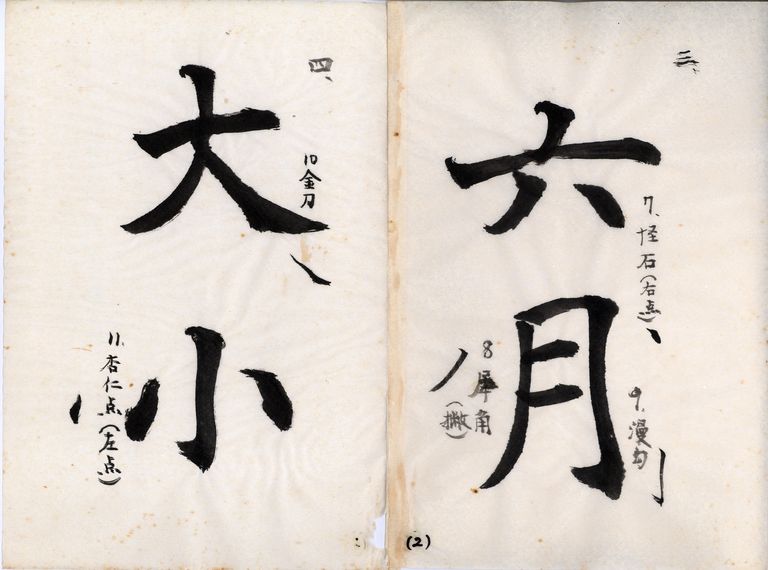 三、
六
7、怪石(右点)
月
8犀角
(撇)
9、漫勾
(2)
四、
大
10金刀
小
11、杏仁点(左点)